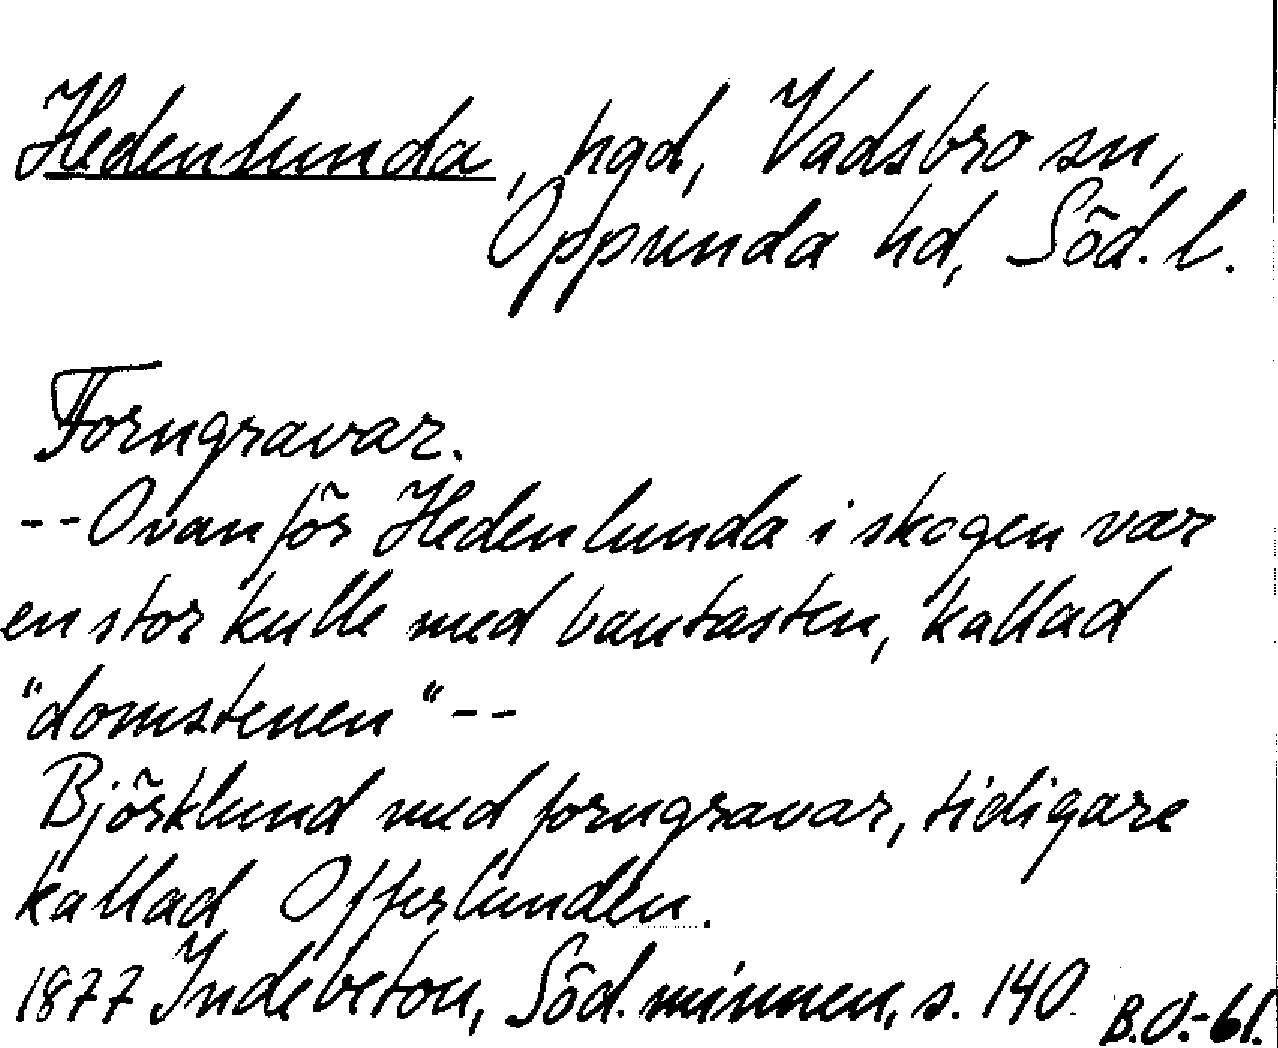 Hedenlunda, hgd, Vadsbro sn,
Oppunda hd, Söd. l.
Forngravar.
--Ovanför Hedenlunda i skogen var
en stor kulle med bautasten, kallad
"domstenen"--
Björklund med forngravar, tidigare
kallad Offerlunden.
1877 Indebetou, Söd. minnen, s. 140
B.O.-61.